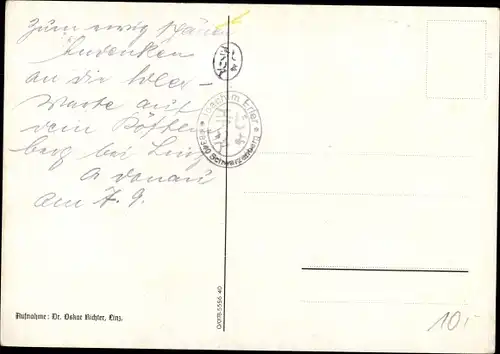 Zum ewig schönen
Andenken
an die Wer-
Warte auf
dem Pöstling
berg bei Linz
a Donau
am 7. 9.
Joachim Erler
Schwarzenberg
Aufnahme: Dr. Oskar Richter, Linz.
O/0178·5556·40
10,-